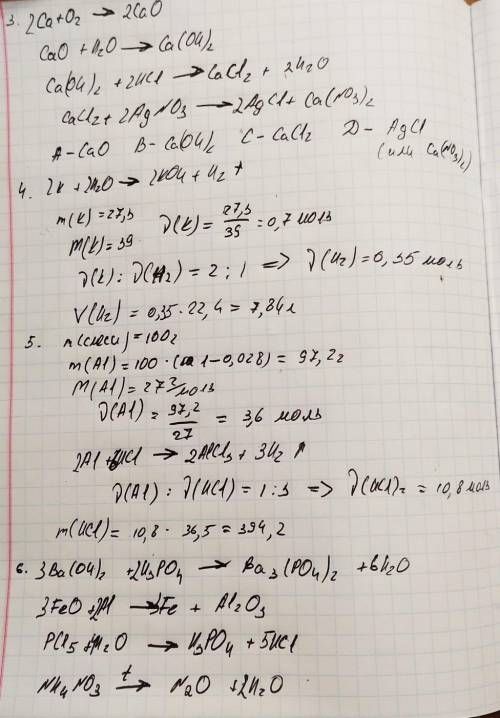 3. 2Ca+O₂ → 2CaO
CaO + H₂O → Ca(OH)₂
Ca(OH)₂ + 2HCl → CaCl₂ + 2H₂O
CaCl₂ + 2AgNO₃ → 2AgCl + Ca(NO₃)₂
A – CaO B – Ca(OH)₂ C – CaCl₂ D – AgCl
(или Ca(NO₃)₂)
4. 2K + 2H₂O → 2KOH + H₂ ↑
m(K) = 27,3 ν(K) = 27,3/39 = 0,7 моль
M(K) = 39
ν(K) : ν(H₂) = 2 : 1 => ν(H₂) = 0,35 моль
V(H₂) = 0,35 · 22,4 = 7,84 л
5. m(смеси) = 100г
m(Al) = 100 · (1 – 0,028) = 97,2г
M(Al) = 27 г/моль
ν(Al) = 97,2/27 = 3,6 моль
2Al + 6HCl → 2AlCl₃ + 3H₂ ↑
ν(Al) : ν(HCl) = 1 : 3 => ν(HCl) = 10,8 моль
m(HCl) = 10,8 · 36,5 = 394,2
6. 3Ba(OH)₂ + 2H₃PO₄ → Ba₃(PO₄)₂ + 6H₂O
3FeO + 2Al → 3Fe + Al₂O₃
PCl₅ + H₂O → H₃PO₄ + 5HCl
NH₄NO₃ →t N₂O + 2H₂O